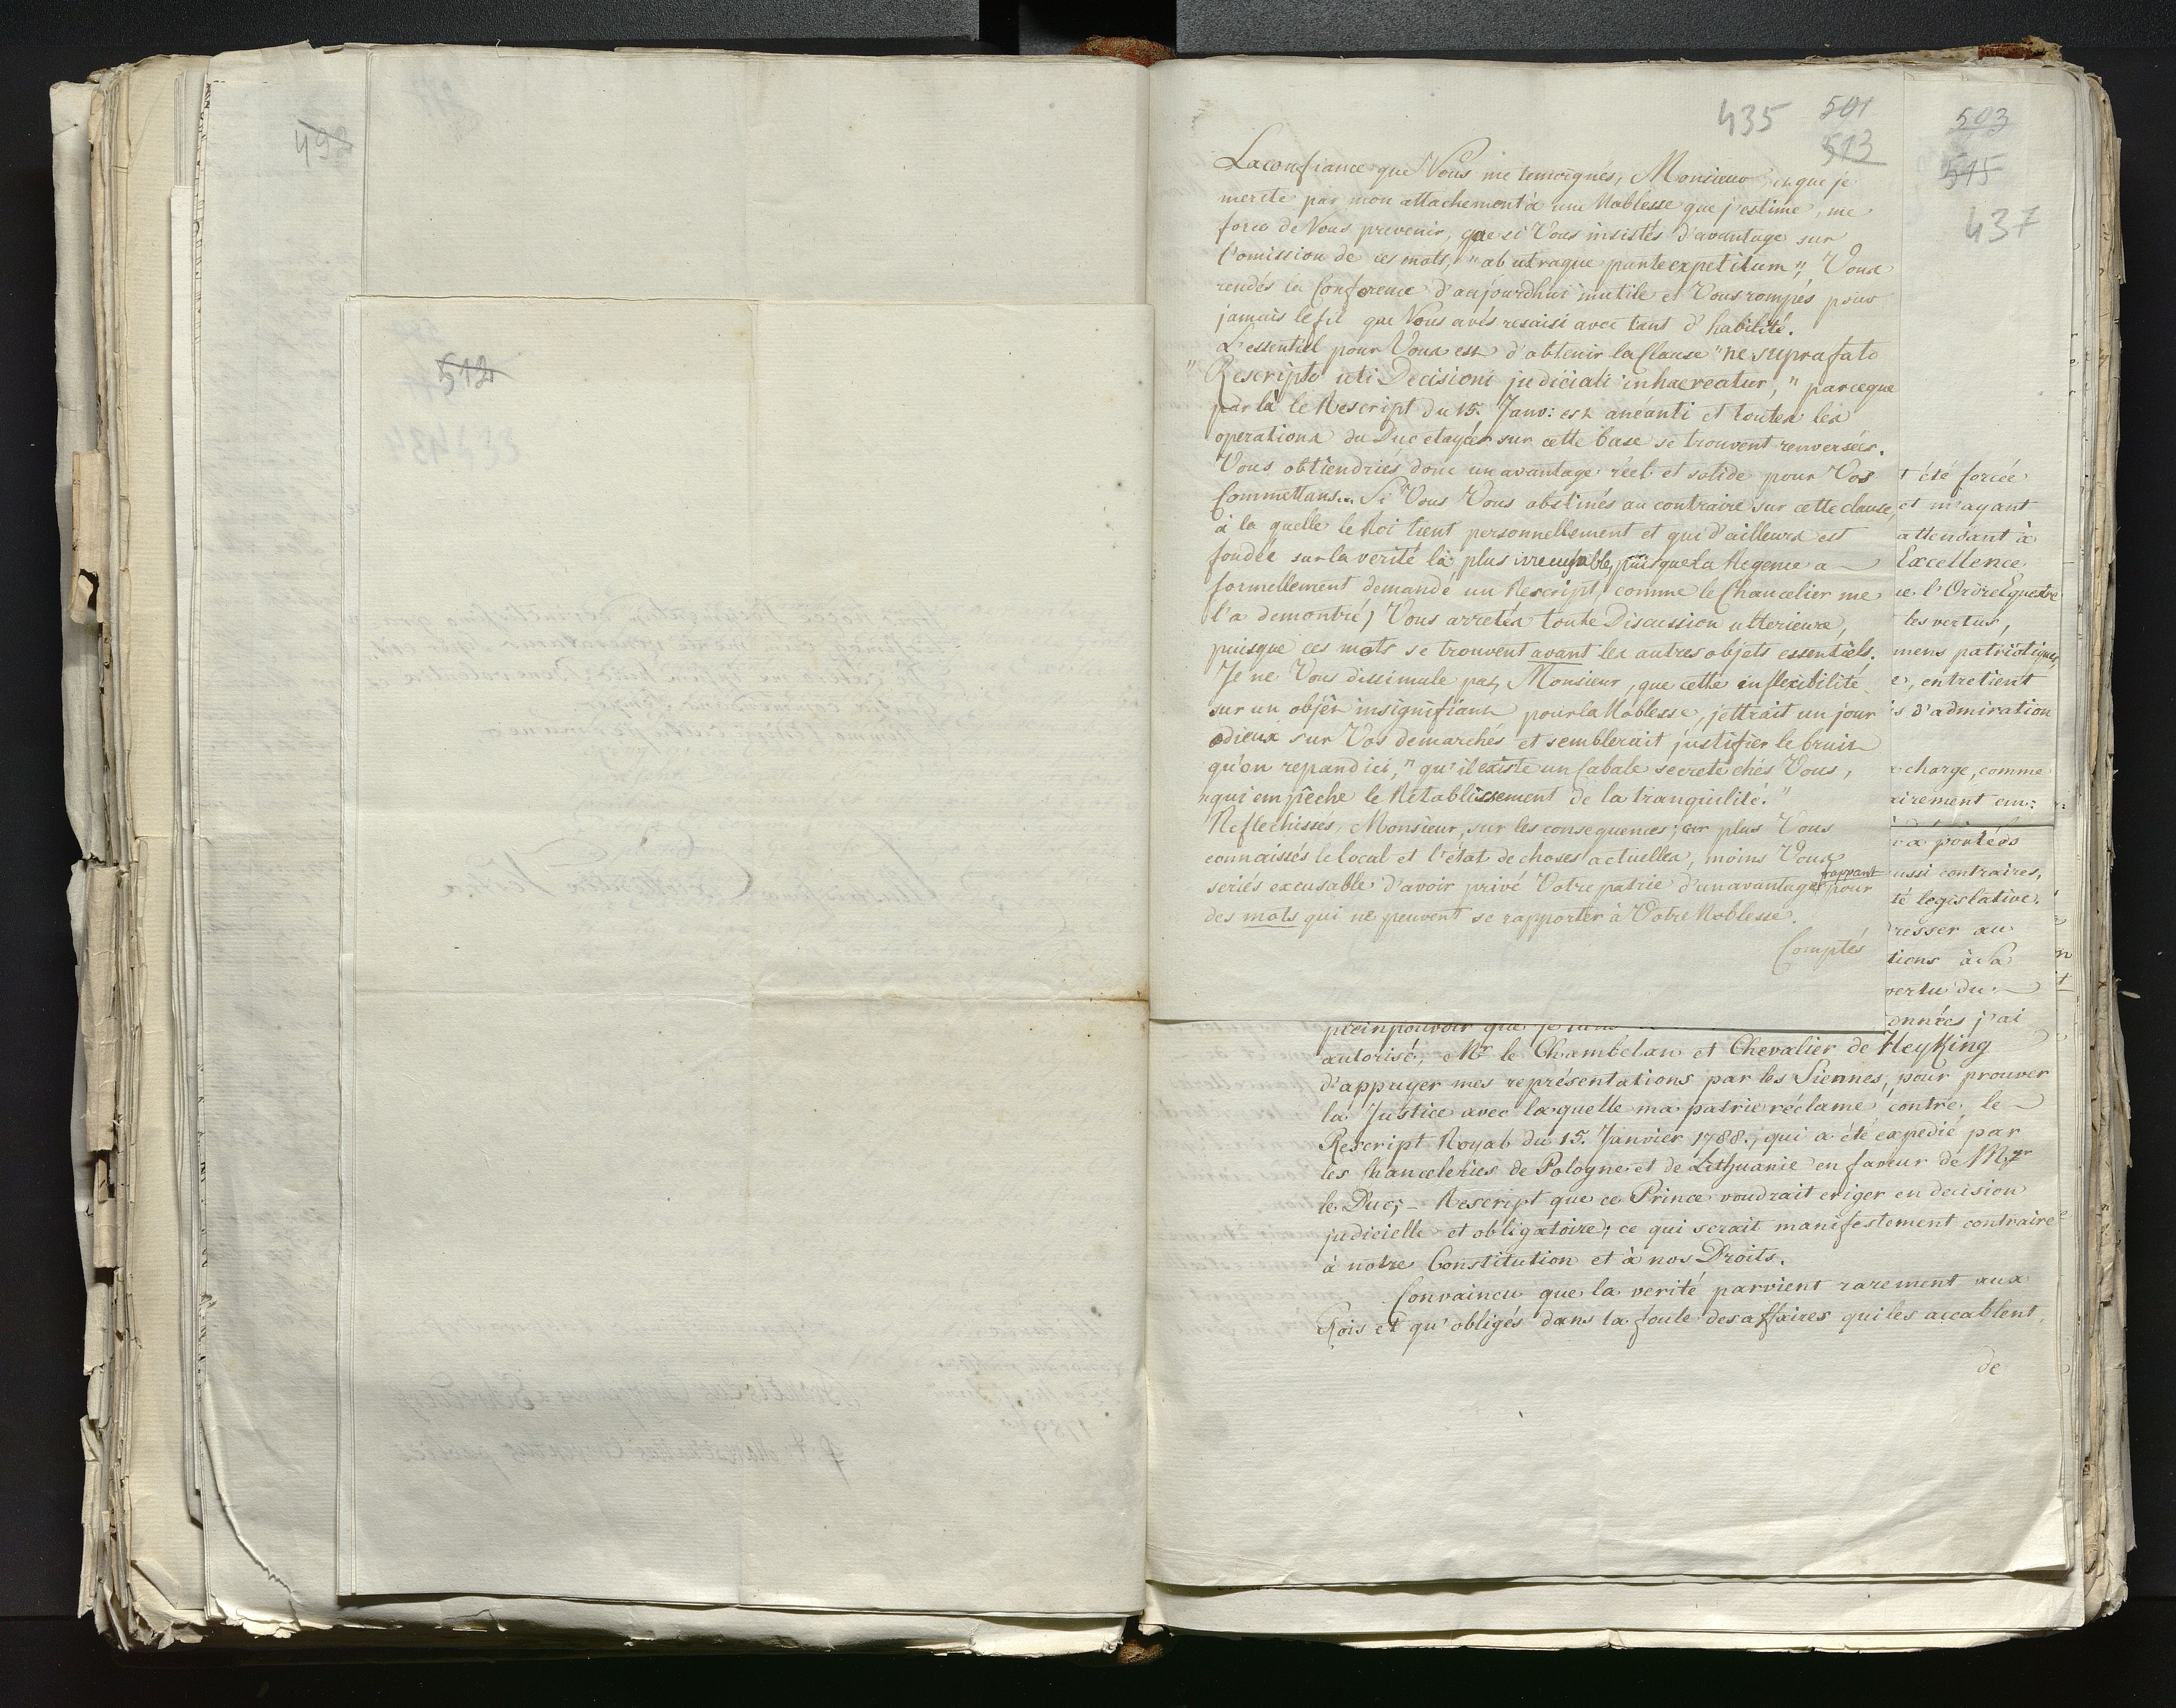 498
512
435 501
513
La confiance que Vous me temoignés, Monsieur et que je
merite par mon attachement à une Noblesse que j'estime, me
force de Vous prevenir, que si Vous insistés d'avantage sur
l'omission de ces mots, "ab utraque parte expetitum", Vous
rendés la Conference d'aujourdhui inutile et Vous rompés pour
jamais le fil que Vous avés resaisi avec tant d'habilité.
L'essentiel pour Vous est d'obtenir la Clause "ne suprafato
"Rescripto uti Decisioni judiciali inhaereatur," parceque
par là le Rescript du 15. Janv: est anéanti et toutes les
operations du Duc etayées sur cette base se trouvent renversées.
Vous obtiendriés donc un avantage réel et solide pour Vos
Commettans. Si Vous Vous obstinés au contraire sur cette clause,
à la quelle le Roi tient personnellement et qui d'ailleurs est
fondée sur la verité la plus irrecusable, puisque la Regence a
formellement demandé un Rescript, comme le Chancelier me
l'a demontré, Vous arretés toute Discussion ulterieure,
puisque ces mots se trouvent avant les autres objets essentiels.
Je ne Vous dissimule pas, Monsieur, que cette inflexibilité
sur un objet insignifiant pour la Noblesse, jettrait un jour
odieux sur Vos demarches et semblerait justifier le bruit
qu'on repand ici, "qu'il existe un Cabale secrete chés Vous,
"qui empêche le Rétablissement de la tranquilité."
Reflechissés, Monsieur, sur les consequences; car plus Vous
connaissés le local et l'état de choses actuelles, moins Vous
seriés excusable d'avoir privé Votre patrie d'un avantage frappant pour
des mots qui ne peuvent se rapporter à Votre Noblesse.
Comptés
503
515
437
t été forcée
et m'ayant
attendant à
Excellence
ue l'Ordre Equestre
les vertus,
mens patriotiques,
e, entretient
s d'admiration
charge, comme
airement em:
va portéds
ussi contraires,
té legislative.
resser au
tions à Sa
vertu du
onnées j'ai
pleinpouvoir que je
autorisé, Mr le Chambelan et Chevalier de HeyKing
d'appuyer mes représentations par les Siennes, pour prouver
la Justice avec laquelle ma patrie réclame contre le
Rescript Royal du 15. Janvier 1788., qui a été expedié par
les Chanceleries de Pologne et de Lithuanie en faveur de Mgr
le Duc; - Rescript que ce Prince voudrait eriger en decision
judicielle et obligatoire; ce qui serait manifestement contraire
à notre Constitution et à nos Droits.
Convaincu que la verité parvient rarement aux
Rois et qu'obligés dans la foule des affaires qui les accablent,
de